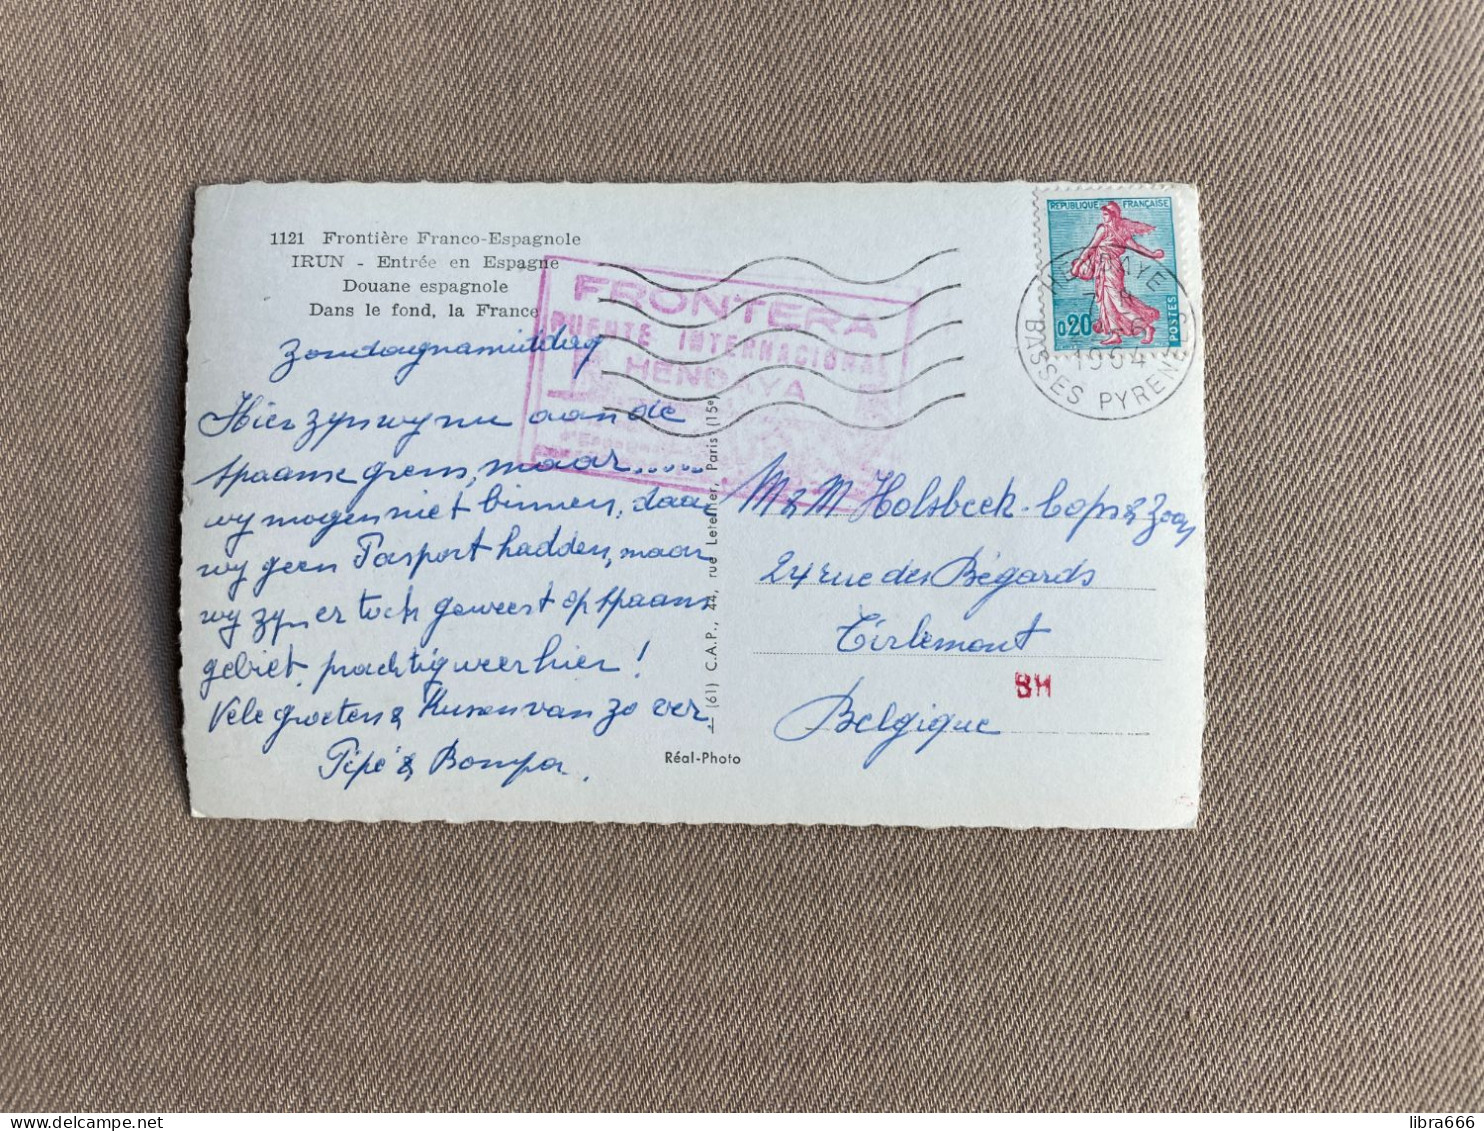 1121 Frontière Franco-Espagnole
IRUN - Entrée en Espagne
Douane espagnole
Dans le fond, la France
FRONTERA
PUENTE INTERNACIONAL
HENDAYA
REPUBLIQUE FRANÇAISE
0,20
POSTES
HENDAYE
1964
BASSES PYRENEES
Zondagnamiddag
Hier zyn wy nu aan de
spaanse grens, maar......
wy mogen niet binnen, daar
wy geen Pasport hadden, maar
wy zyn er toch geweest op spaans
gebiet, prachtig weer hier!
Vele groeten & Kussen van zo ver
Pépé & Bompa.
(61) C.A.P., 44, rue Letellier, Paris (15e)
Réal-Photo
M & M Holsbeek-Cops & Zoon
24 rue des Bégards
Tirlemont
Belgique
BH
libra666